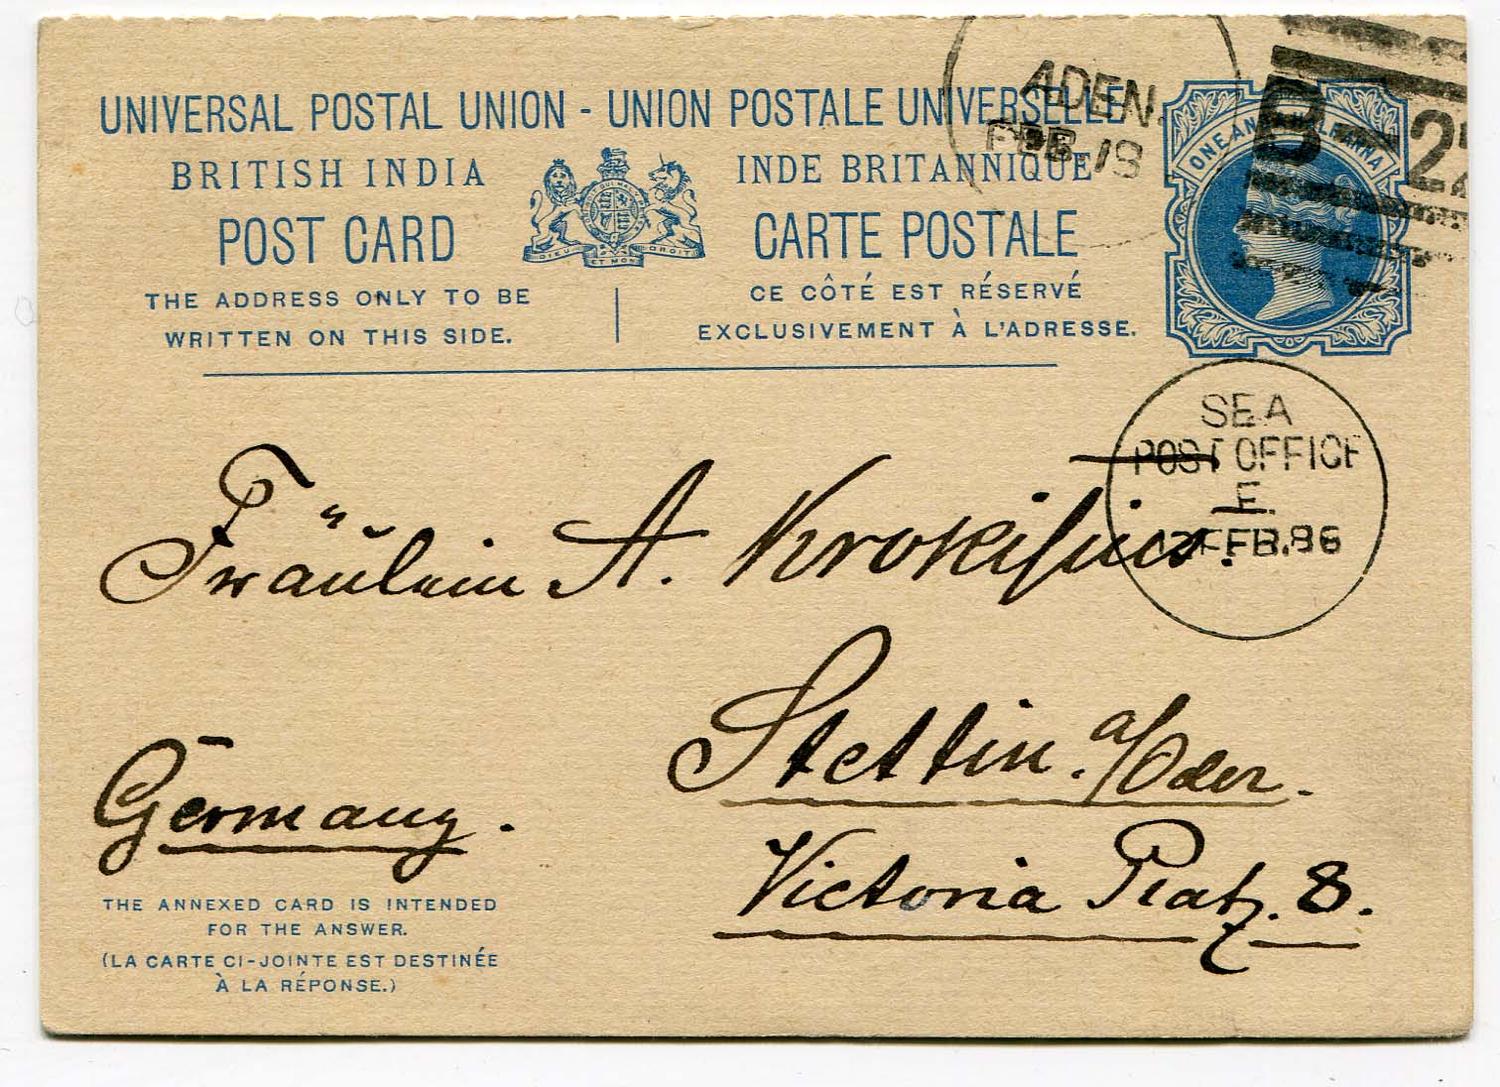 UNIVERSAL POSTAL UNION - UNION POSTALE UNIVERSELLE
BRITISH INDIA
INDE BRITANNIQUE
POST CARD
CARTE POSTALE
THE ADDRESS ONLY TO BE
WRITTEN ON THIS SIDE.
CE CÔTÉ EST RÉSERVÉ
EXCLUSIVEMENT À L'ADRESSE.
DIEU ET MON DROIT
ADEN.
FEB. 18
B-22
ONE AND A HALF ANNA
SEA
POST OFFICE
E.
FEB. 86
Fräulein A.
Stettin a/Oder.
Victoria Platz. 8.
Germany.
THE ANNEXED CARD IS INTENDED
FOR THE ANSWER.
(LA CARTE CI-JOINTE EST DESTINÉE
À LA RÉPONSE.)